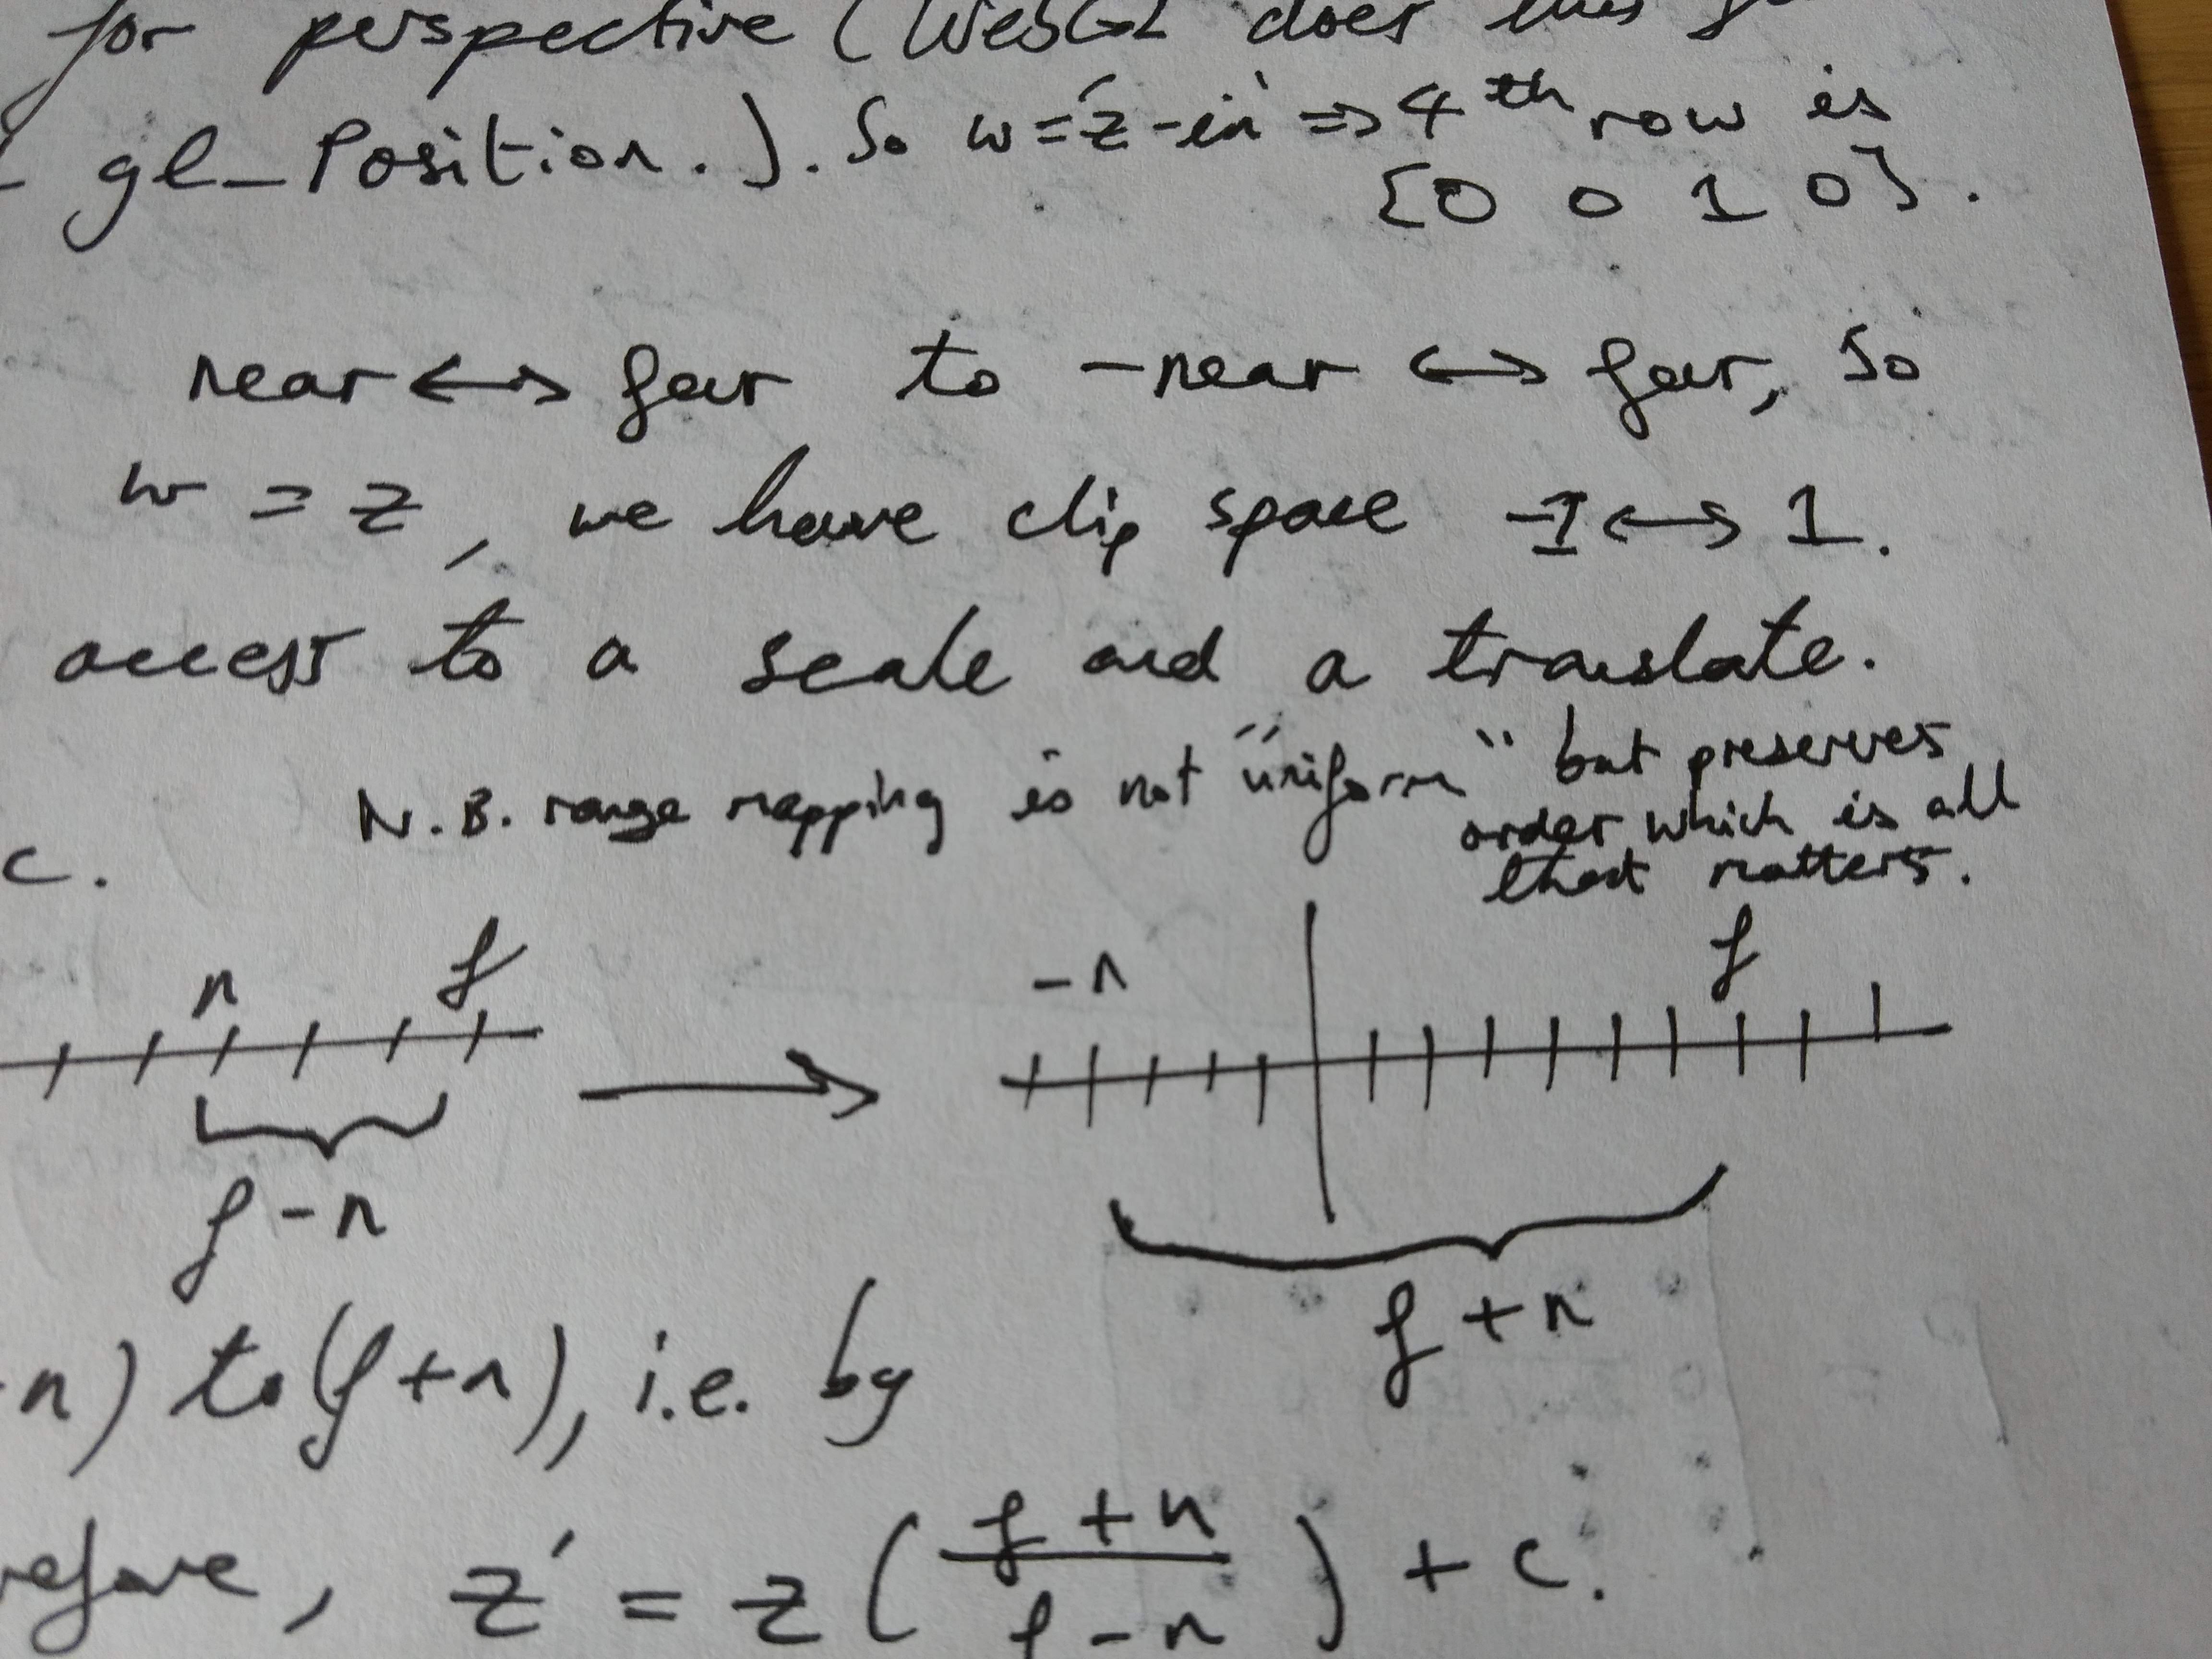 for perspective (WebGL does this
gl_Position.). So w='z-in' => 4th row is
[0 0 1 0].
near <-> far to -near <-> far, so
w = z, we have clip space -1 <-> 1.
access to a scale and a translate.
N.B. range mapping is not "uniform" but preserves
order which is all
that matters.
c.
n f
-n f
f-n
f+n
n) to (f+n), i.e. by
refore, z' = z ( f+n / f-n ) + c.